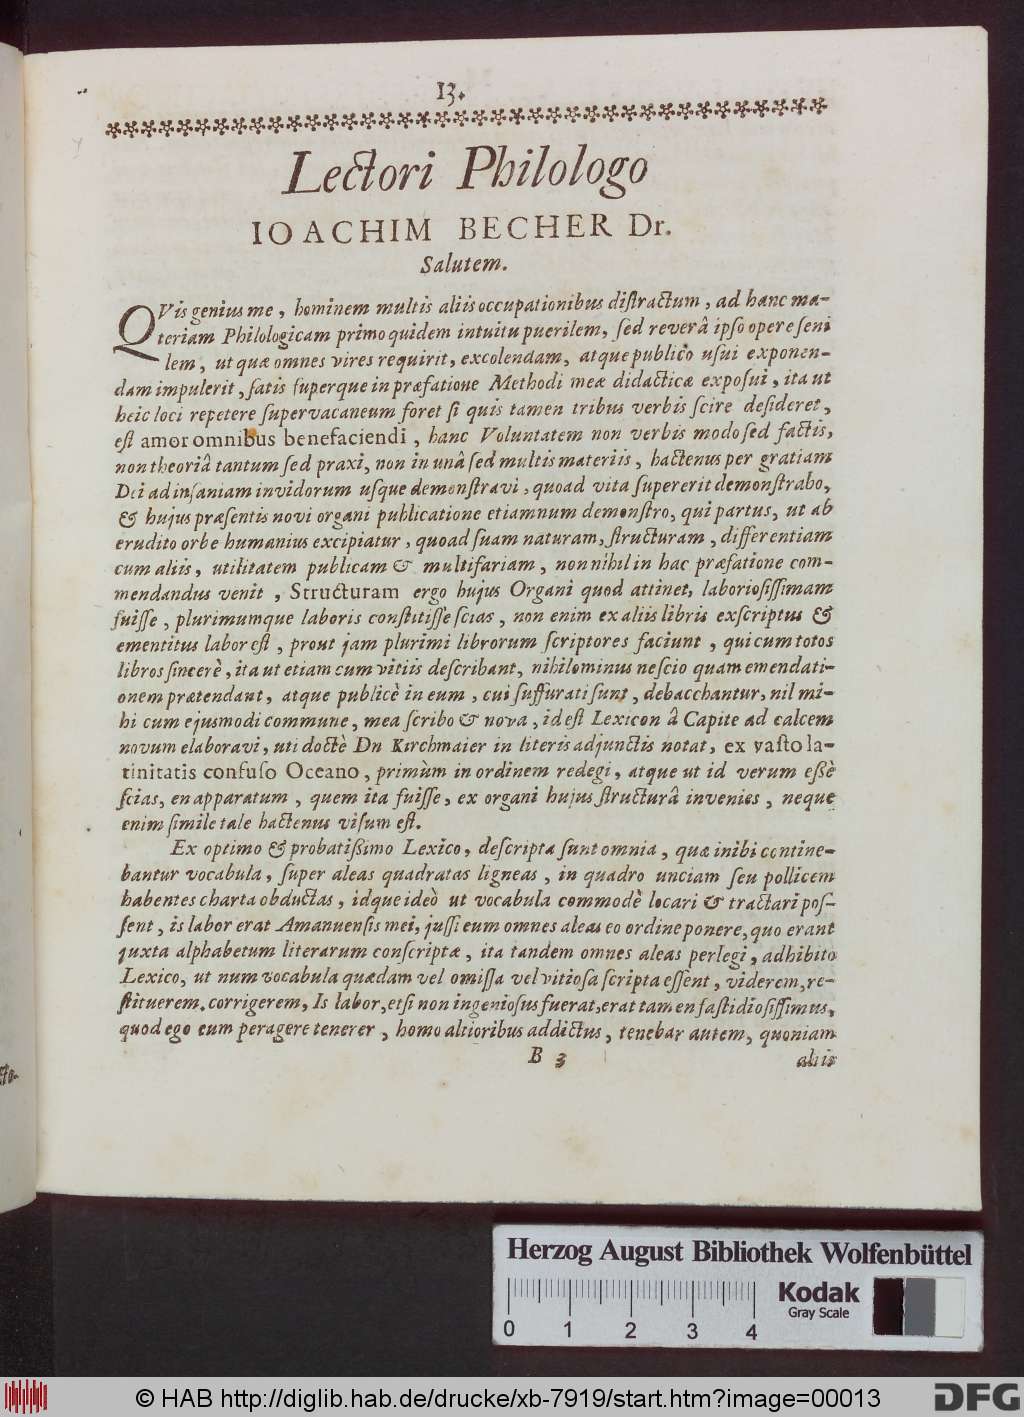 13.
Lectori Philologo
IOACHIM BECHER Dr.
Salutem.
QVis genius me, hominem multis aliis occupationibus distractum, ad hanc ma-
teriam Philologicam primo quidem intuitu puerilem, sed reverâ ipso opere seni
lem, ut quæ omnes vires requirit, excolendam, atque publico usui exponen-
dam impulerit, satis superque in præfatione Methodi meæ didacticæ exposui, ita ut
heic loci repetere supervacaneum foret si quis tamen tribus verbis scire desideret,
est amor omnibus benefaciendi, hanc Voluntatem non verbis modo sed factis,
non theoriâ tantum sed praxi, non in unâ sed multis materiis, hactenus per gratiam
Dei ad insaniam invidorum usque demonstravi, quoad vita supererit demonstrabo,
& hujus præsentis novi organi publicatione etiamnum demonstro, qui partus, ut ab
erudito orbe humanius excipiatur, quoad suam naturam, structuram, differentiam
cum aliis, utilitatem publicam & multifariam, nonnihil in hac præfatione com-
mendandus venit, Structuram ergo hujus Organi quod attinet, laboriosissimam
fuisse, plurimumque laboris constitisse scias, non enim ex aliis libris exscriptus &
ementitus labor est, prout jam plurimi librorum scriptores faciunt, qui cum totos
libros sincerè, ita ut etiam cum vitiis describant, nihilominus nescio quam emendati-
onem prætendant, atque publicè in eum, cui suffurati sunt, debacchantur, nil mi-
hi cum ejusmodi commune, mea scribo & nova, id est Lexicon â Capite ad calcem
novum elaboravi, uti doctè Dn Kirchmaier in literis adjunctis notat, ex vasto la-
tinitatis confuso Oceano, primùm in ordinem redegi, atque ut id verum essè
scias, en apparatum, quem ita fuisse, ex organi hujus structurâ invenies, neque
enim simile tale hactenus visum est.
Ex optimo & probatissimo Lexico, descripta sunt omnia, quæ inibi contine-
bantur vocabula, super aleas quadratas ligneas, in quadro unciam seu pollicem
habentes charta obductas, idque ideò ut vocabula commodè locari & tractari pos-
sent, is labor erat Amanuensis mei, jussi eum omnes aleas eo ordine ponere, quo erant
juxta alphabetum literarum conscriptæ, ita tandem omnes aleas perlegi, adhibito
Lexico, ut num vocabula quædam vel omissa vel vitiosa scripta essent, viderem, re-
stituerem, corrigerem, Is labor, etsi non ingeniosus fuerat, erat tamen fastidiosissimus,
quod ego eum peragere tenerer, homo altioribus addictus, tenebar autem, quoniam
B 3
aliis
Herzog August Bibliothek Wolfenbüttel
Kodak
Gray Scale
0 1 2 3 4
© HAB http://diglib.hab.de/drucke/xb-7919/start.htm?image=00013
DFG